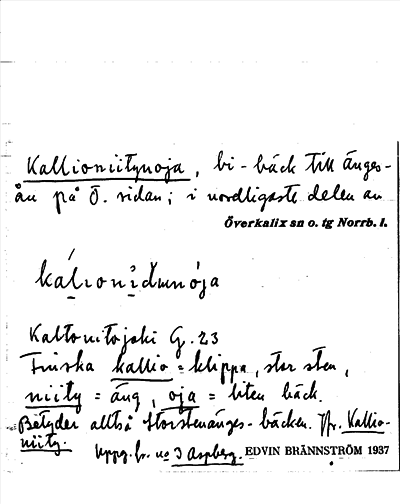 Kallioniitynoja, bi-bäck till änges-
ån på Ö. sidan; i nordligaste delen av
Överkalix sn o. tg Norrb. l.
Kaltonitojoki G. 23
Finska kallio = klippa, stor sten,
niity = äng, oja = liten bäck.
Betyder alltså Storstenänges-bäcken. Jfr. Kallio-
niity.
Uppg. fr. no 3 Aspberg. EDVIN BRÄNNSTRÖM 1937